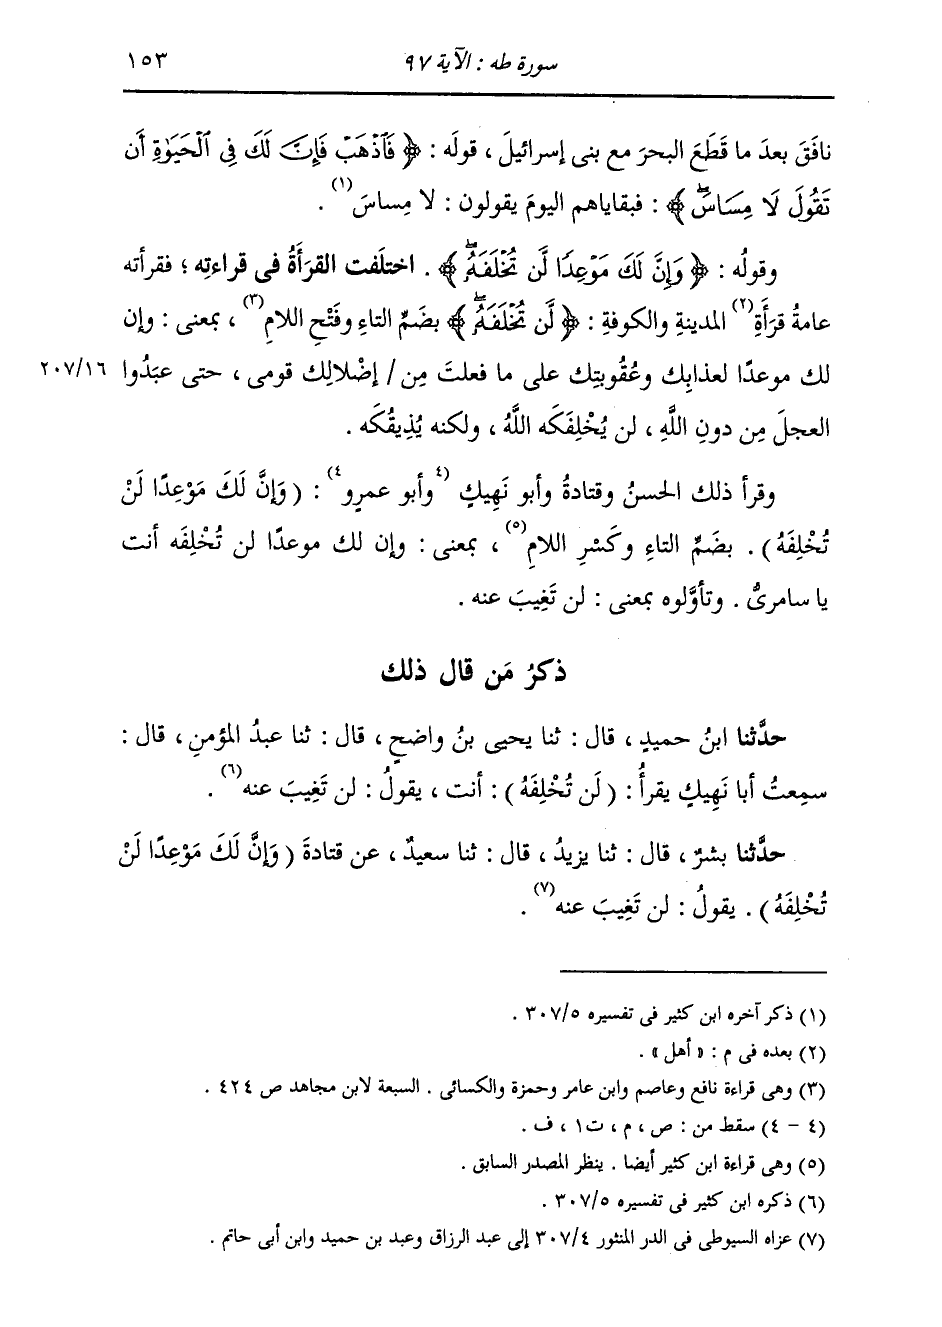 سورة طه : الآية ٩٧ ١٥٣
نافَقَ بعدَ ما قَطَع البحرَ مع بنى إسرائيلَ ، قولَه : ﴿ فَٱذْهَبْ فَإِنَّ لَكَ فِى ٱلْحَيَوٰةِ أَن
تَقُولَ لَا مِسَاسَۖ ﴾ : فبقاياهم اليومَ يقولون : لا مِساسَ(١) .
وقولُه : ﴿ وَإِنَّ لَكَ مَوْعِدًا لَّن تُخْلَفَهُۥۖ ﴾ . اختلَفت القرَأَةُ فى قراءتِه ؛ فقرأته
عامةُ قرَأَةِ(٢) المدينةِ والكوفةِ : ﴿ لَّن تُخْلَفَهُۥۖ ﴾ بضَمِّ التاءِ وفَتْحِ اللامِ(٣) ، بمعنى : وإن
لك موعدًا لعذابِك وعُقُوبتِك على ما فعلتَ مِن / إضْلالِك قومى ، حتى عبَدُوا ٢٠٧/١٦
العجلَ مِن دونِ اللَّهِ ، لن يُخْلِفَكَه اللَّهُ ، ولكنه يُذِيقُكَه .
وقرأ ذلك الحسنُ وقتادةُ وأبو نَهِيكٍ (٤وأبو عمرٍو٤) : ( وَإِنَّ لَكَ مَوْعِدًا لَنْ
تُخْلِفَهُ ) . بضَمِّ التاءِ وكَسْرِ اللامِ(٥) ، بمعنى : وإن لك موعدًا لن تُخْلِفَه أنت
يا سامرىُّ . وتأوَّلوه بمعنى : لن تَغِيبَ عنه .
ذكرُ مَن قال ذلك
حدَّثنا ابنُ حميدٍ ، قال : ثنا يحيى بنُ واضحٍ ، قال : ثنا عبدُ المؤمنِ ، قال :
سمِعتُ أبا نَهِيكٍ يقرأُ : ( لَن تُخْلِفَهُ ) : أنت ، يقولُ : لن تَغِيبَ عنه(٦) .
حدَّثنا بشرٌ ، قال : ثنا يزيدُ ، قال : ثنا سعيدٌ ، عن قتادةَ ( وَإِنَّ لَكَ مَوْعِدًا لَنْ
تُخْلِفَهُ ) . يقولُ : لن تَغِيبَ عنه(٧) .
(١) ذكر آخره ابن كثير فى تفسيره ٣٠٧/٥ .
(٢) بعده فى م : « أهل » .
(٣) وهى قراءة نافع وعاصم وابن عامر وحمزة والكسائى . السبعة لابن مجاهد ص ٤٢٤ .
(٤ - ٤) سقط من : ص ، م ، ت١ ، ف .
(٥) وهى قراءة ابن كثير أيضا . ينظر المصدر السابق .
(٦) ذكره ابن كثير فى تفسيره ٣٠٧/٥ .
(٧) عزاه السيوطى فى الدر المنثور ٣٠٧/٤ إلى عبد الرزاق وعبد بن حميد وابن أبى حاتم .